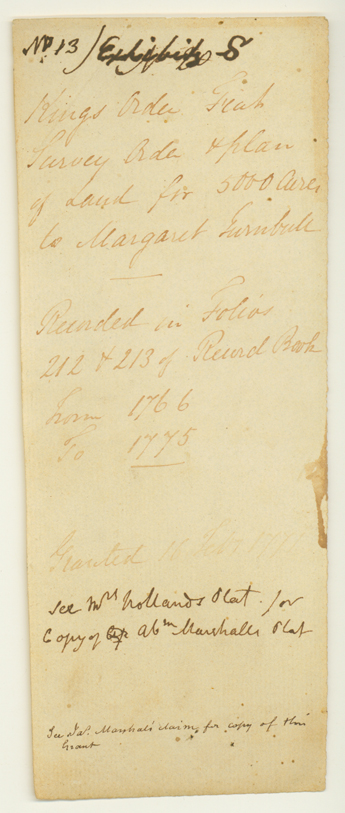 No 13 / Exhibit S
Kings Order Fiat
Survey Order & plan
of Land for 5000 Acres
to Margaret Turnbull
Recorded in Folios
212 & 213 of Record Book
From 1766
To 1775
Granted 16 Feby
See Mrs Hollands Plat for
Copy of Abm Marshalls Plat
See Marshal's claim, for copy of this
Grant